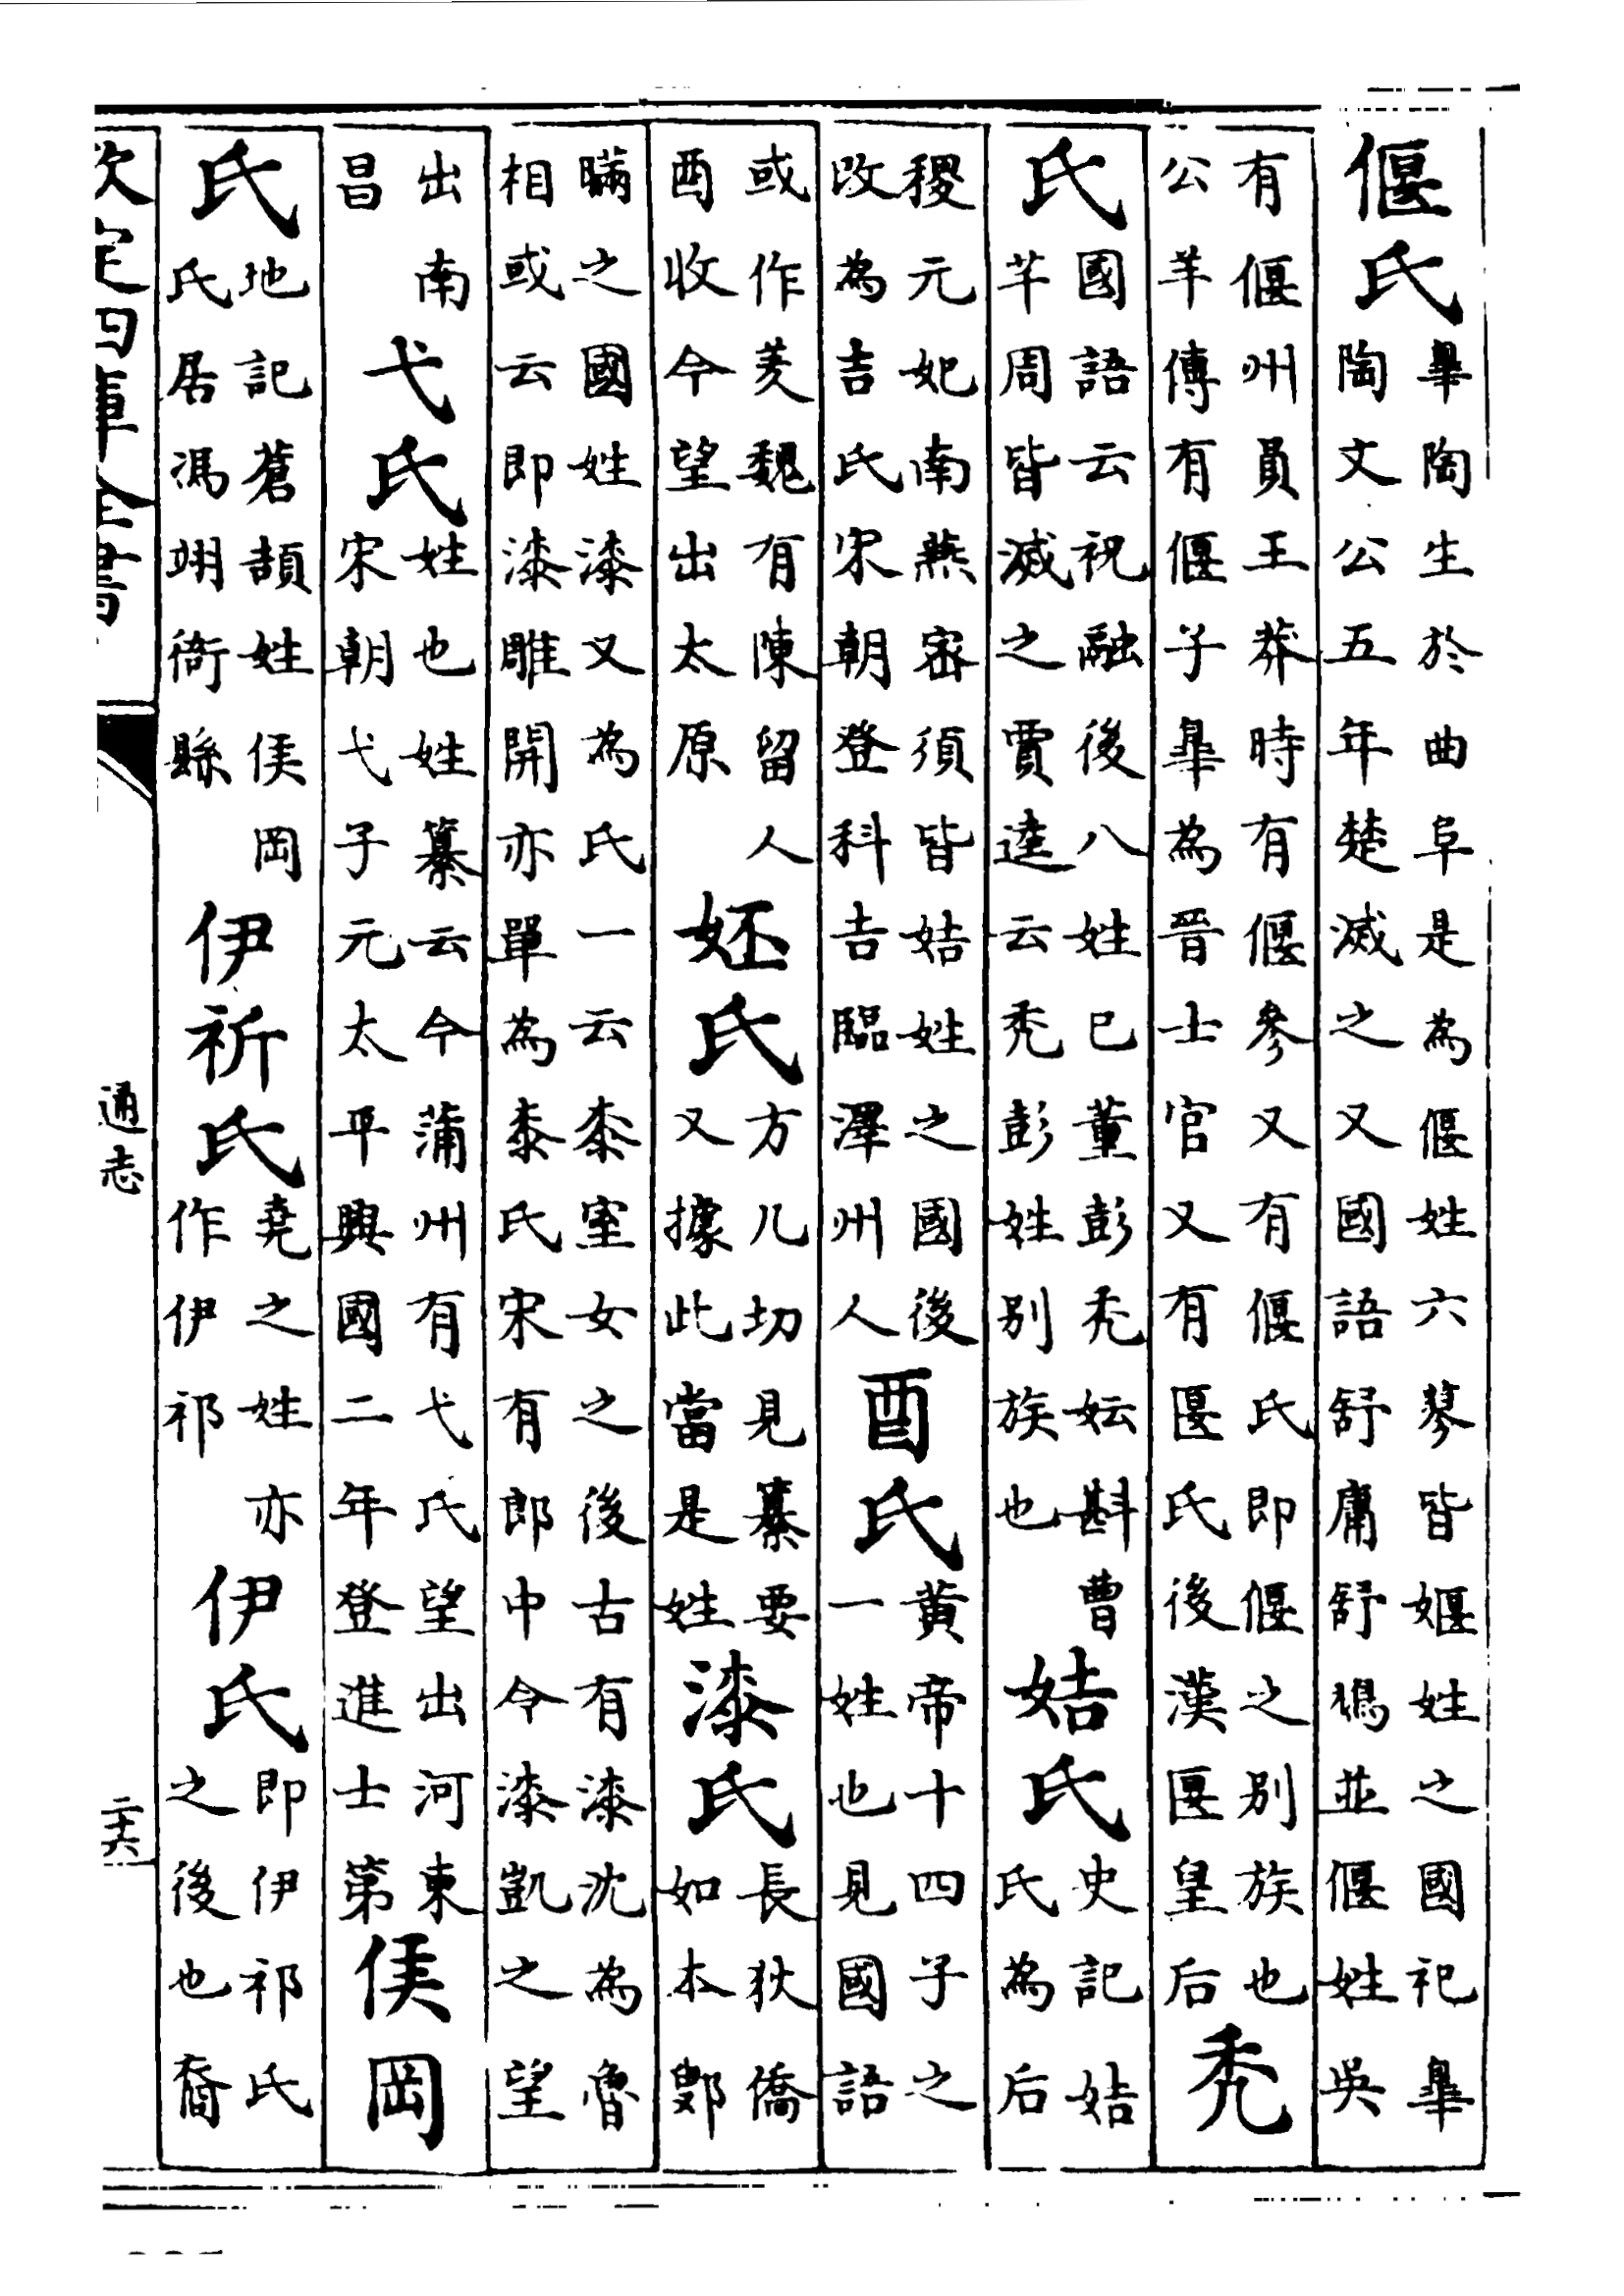 偃氏臯陶生於曲阜是為偃姓六蓼皆嫕姓之國祀臯陶文公五年楚滅之又國語舒庸舒鳩並偃姓吳
有偃州員王莽時有偃參又有偃氏即偃之别族也公羊傳有偃子臯為晉士官又有匽氏後漢匽皇后禿
氏國語云祝融後八姓已董彭禿妘斟曹芊周皆滅之賈逵云禿彭姓别族也姞氏史記姞氏為后
稷元妃南燕宻須皆姞姓之國後改為吉氏宋朝登科吉臨澤州人酉氏黄帝十四子之一姓也見國語
或作羑魏有陳留人酉收今望出太原㚰氏方几切見纂要又據此當是姓漆氏長狄僑如本鄋
瞞之國姓漆又為氏一云桼室女之後古有漆沈為魯相或云即漆雕開亦單為桼氏宋有郎中令漆凱之望
出南昌弋氏姓也姓纂云今蒲州有弋氏望出河東宋朝弋子元太平興國二年登進士第侯岡
氏地記蒼頡姓侯岡氏居馮翊衙縣伊祈氏堯之姓亦作伊祁伊氏即伊祁氏之後也裔
欽定四庫全書
通志
二十六